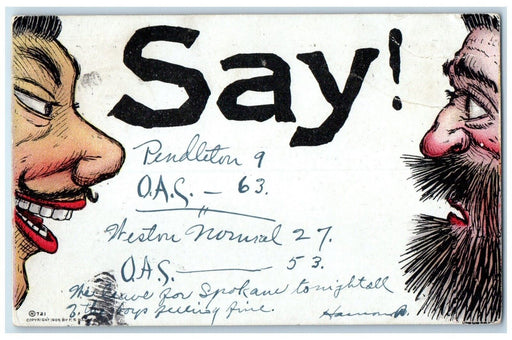 Say!
Pendleton 9
O.A.C. - 63.
Weston Normal 27.
O.A.C. 53.
We leave for Spokane tonight all
boys feeling fine.
© 721
COPYRIGHT